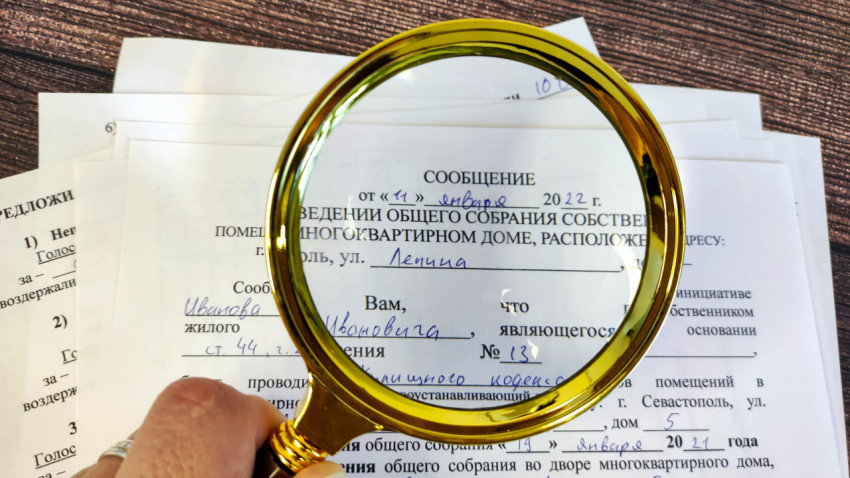 СООБЩЕНИЕ
от «11» января 2022 г.
ВЕДЕНИИ ОБЩЕГО СОБРАНИЯ СОБСТВЕН
ПОМЕЩ МНОГОКВАРТИРНОМ ДОМЕ, РАСПОЛОЖЕ ДРЕСУ:
г. поль, ул. Ленина, до
Сооб Вам, что инициативе
Иванова Ивановича, являющегося бственником
жилого ения №13 основании
ст. 44, г. Жилищного кодекса
проводи ов помещений в
роустанавливающий г. Севастополь, ул.
, дом 5
ия общего собрания «19» января 2021 года
ения общего собрания во дворе многоквартирного дома,
РЕДЛОЖИ
1) Неп
Голос
за –
воздержали
2)
Го
за –
воздерж
3
Голос
за –